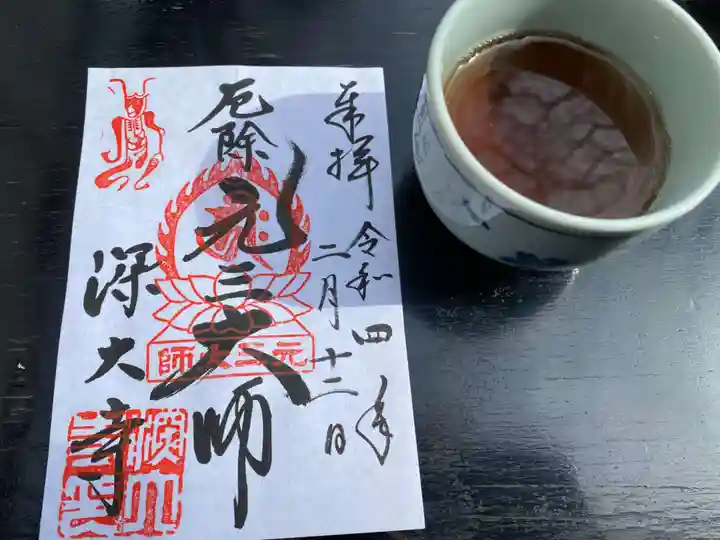 奉拝
令和四年
二月十二日
厄除
元三大師
師大三元
深大寺